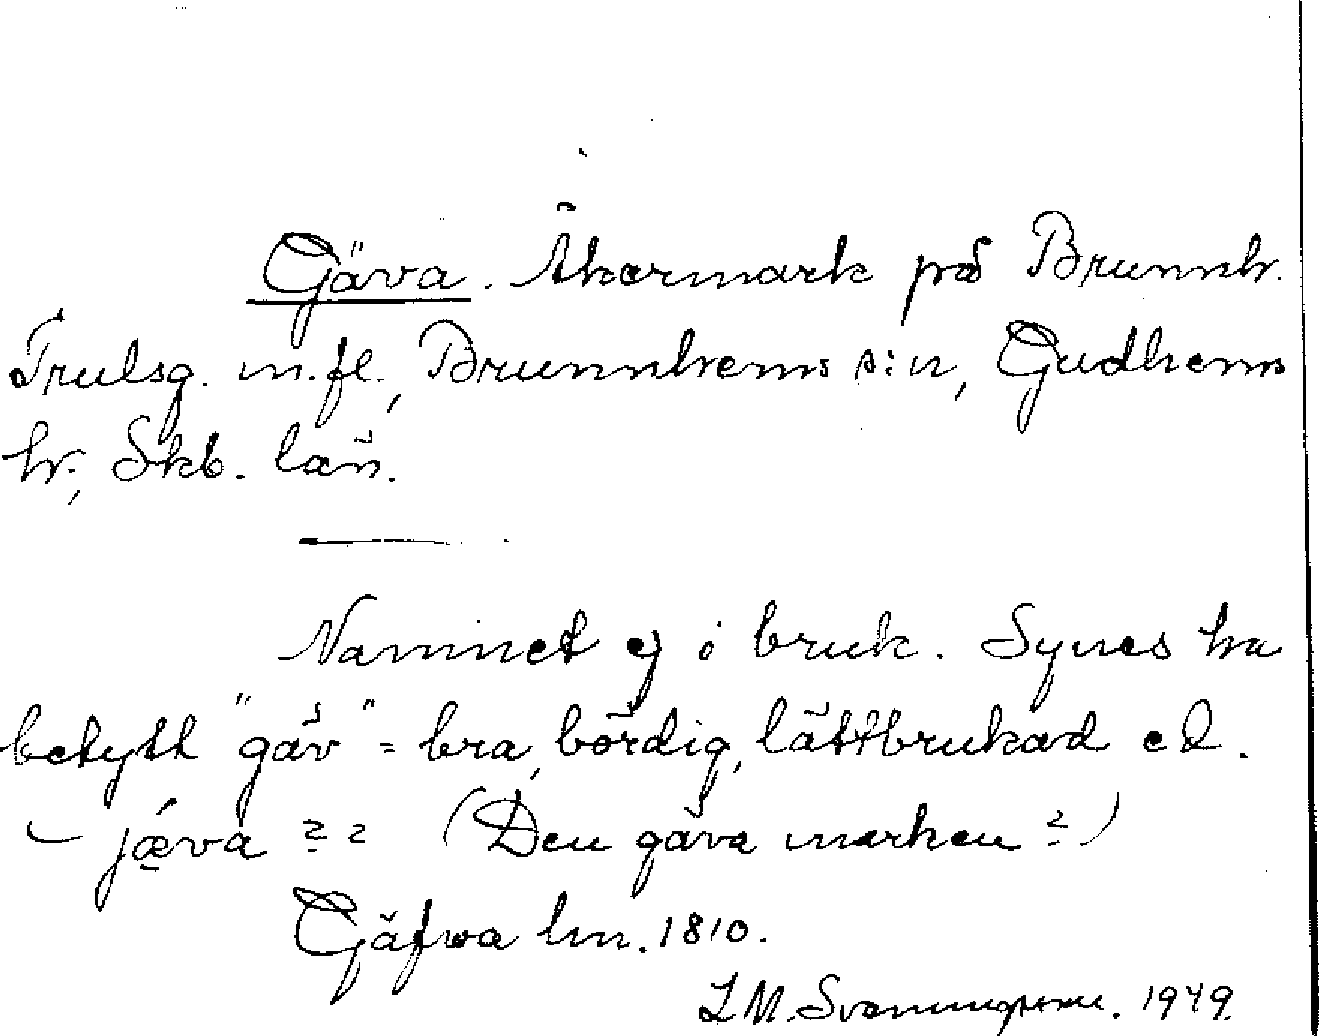 Gäva. Åkermark på Brunnh.
Trulsg. m.fl., Brunnhems s:n, Gudhems
hr, Skb. län.
Namnet ej i bruk. Synes ha
betytt "gäv" = bra, bördig, lättbrukad e d.
– jǽva (Den gäva marken ?)
Gäfwa lm. 1810.
L M. Svenungsson. 1949.